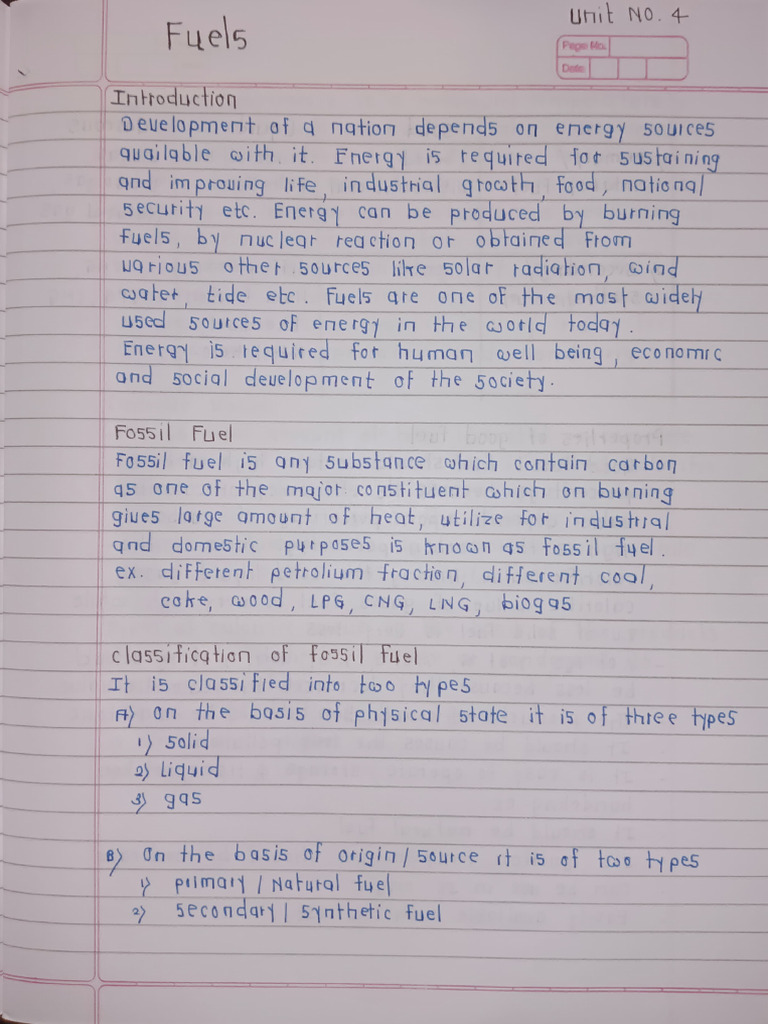 Unit No. 4
Fuels
Page No.
Date
Introduction
Development of a nation depends on energy sources
available with it. Energy is required for sustaining
and improving life, industrial growth, food, national
security etc. Energy can be produced by burning
fuels, by nuclear reaction or obtained from
various other sources like solar radiation, wind
water, tide etc. Fuels are one of the most widely
used sources of energy in the world today.
Energy is required for human well being, economic
and social development of the society.
Fossil Fuel
Fossil fuel is any substance which contain carbon
as one of the major constituent which on burning
gives large amount of heat, utilize for industrial
and domestic purposes is known as fossil fuel.
ex. different petrolium fraction, different coal,
coke, wood, LPG, CNG, LNG, biogas
classification of fossil fuel
It is classified into two types
A) on the basis of physical state it is of three types
1) Solid
2) Liquid
3) gas
B) On the basis of origin / source it is of two types
1) primary / Natural fuel
2) Secondary / Synthetic fuel